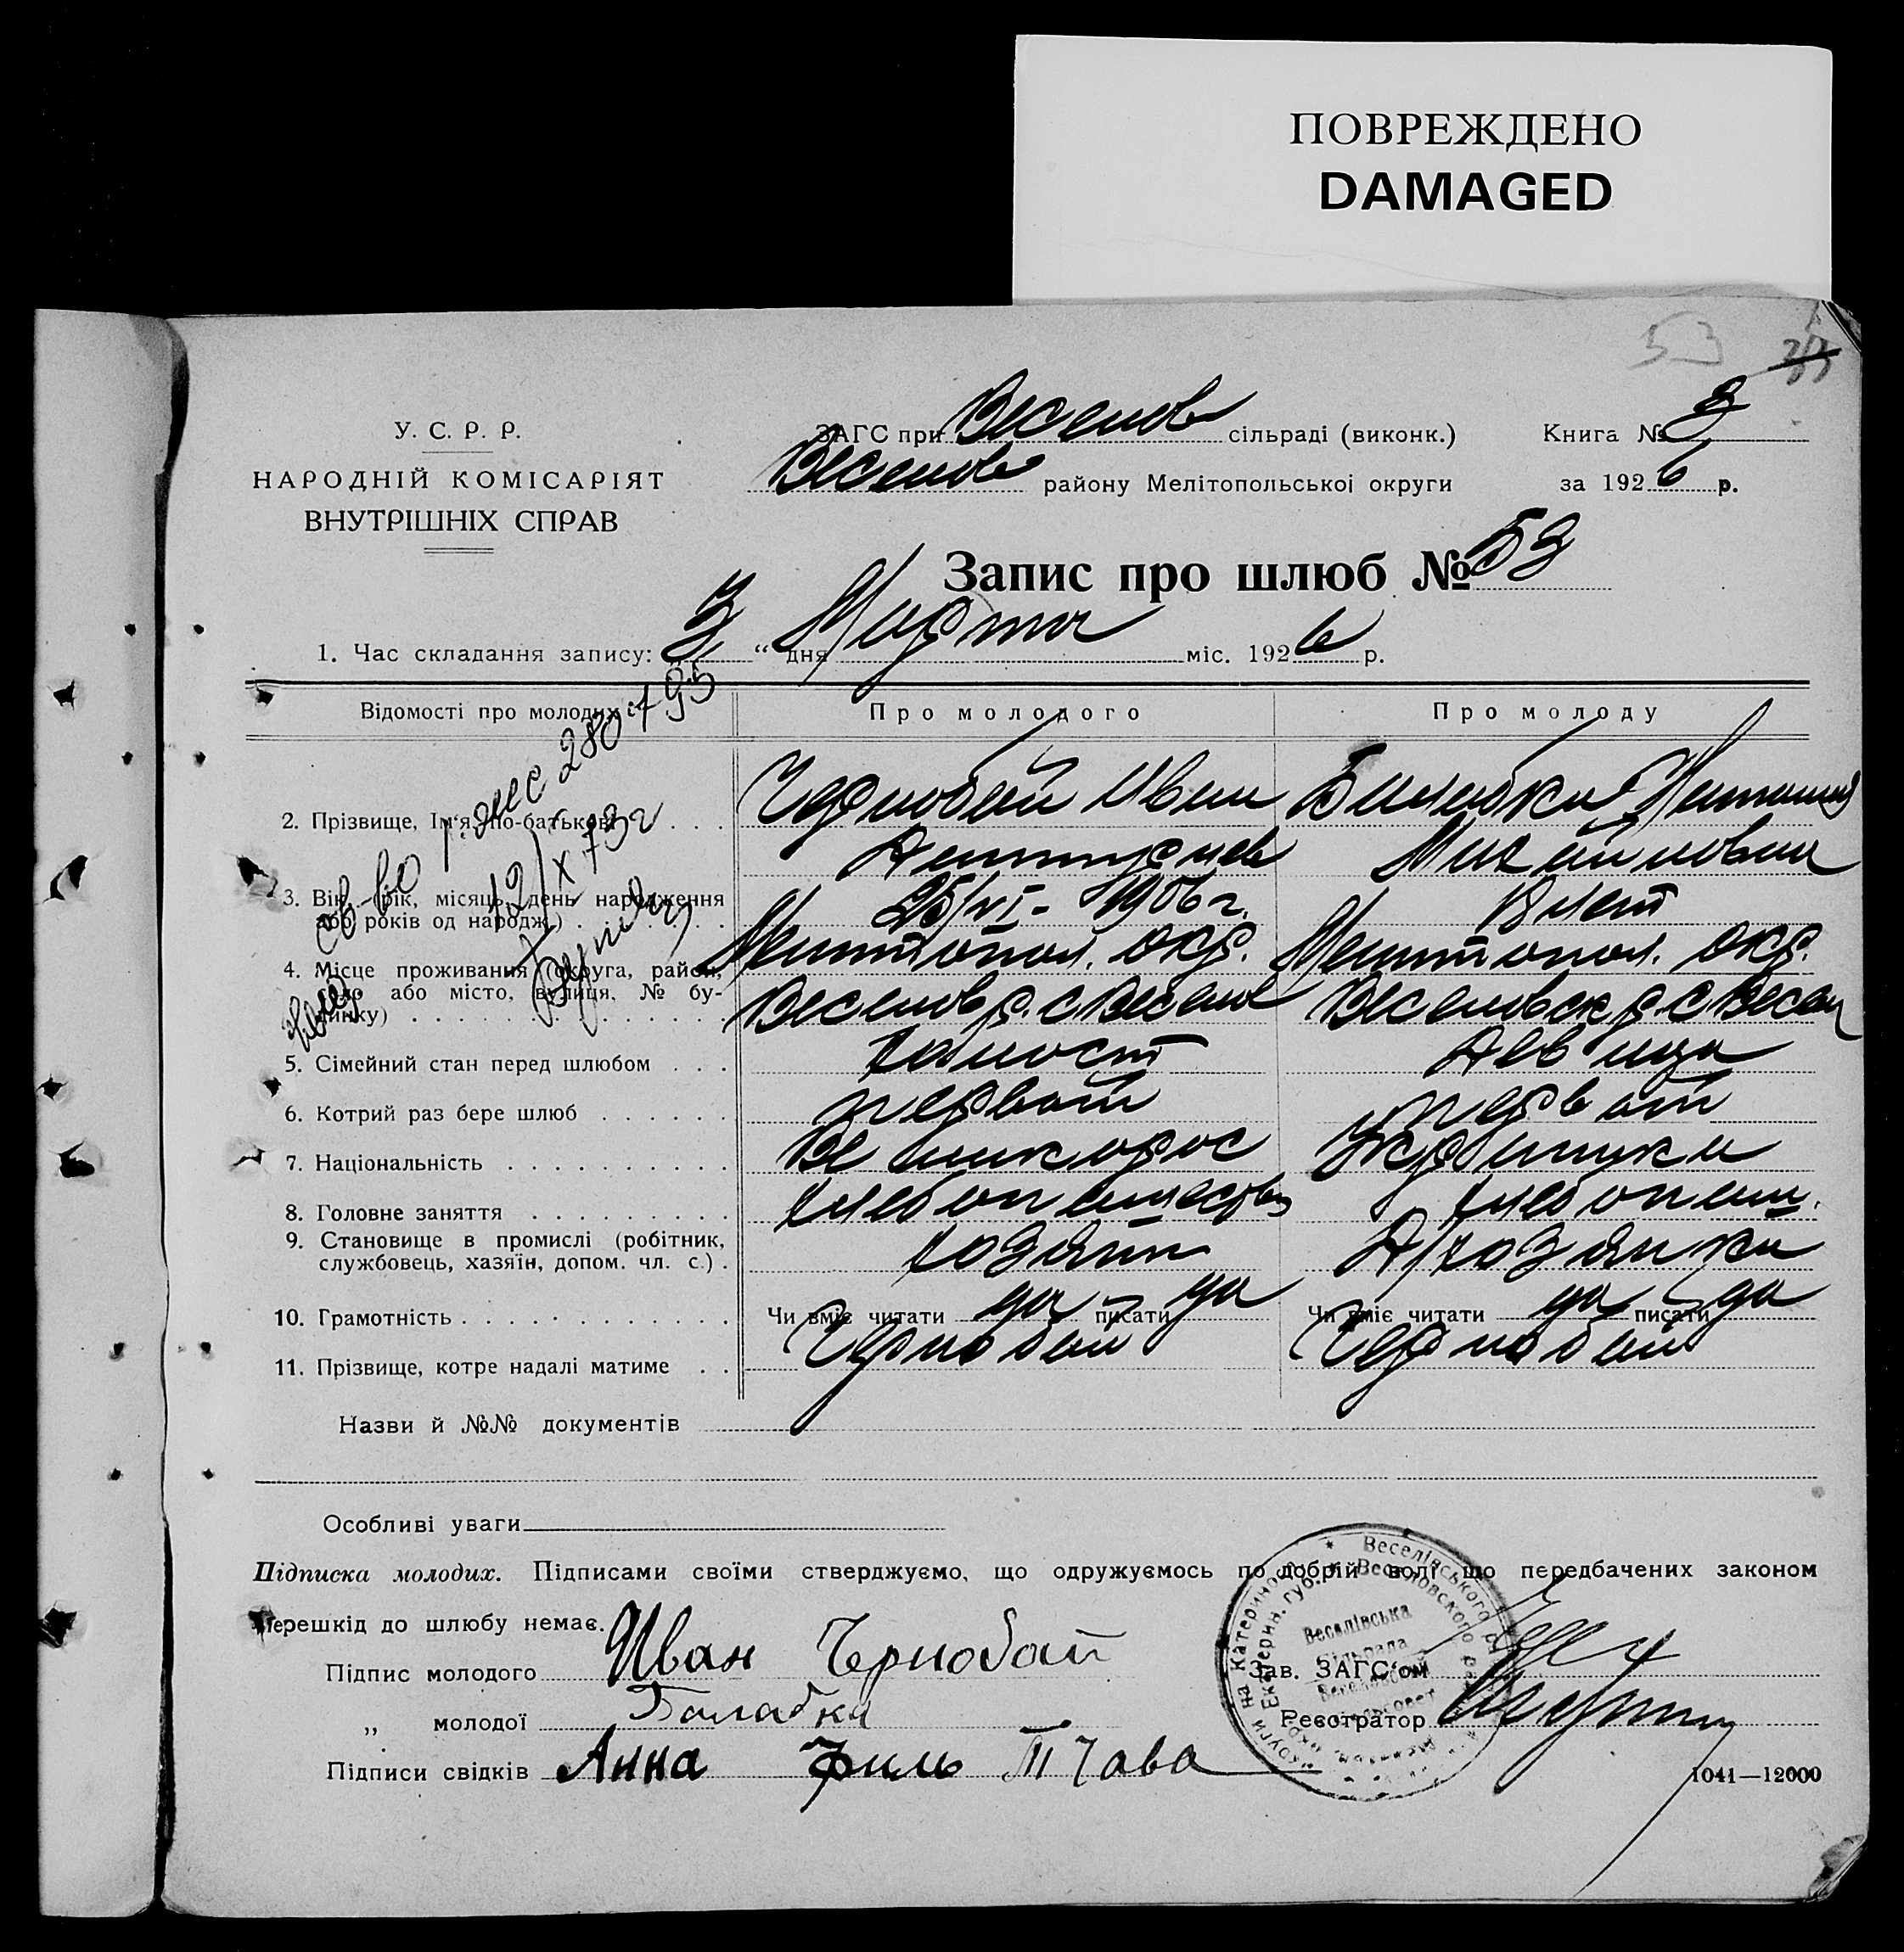 ПОВРЕЖДЕНО
DAMAGED
53
У. С. Р. Р.
НАРОДНІЙ КОМІСАРІЯТ
ВНУТРІШНІХ СПРАВ
ЗАГС при Веселов сільраді (виконк.)
Веселов району Мелітопольської округи
Книга № 3
за 1926 р.
Запис про шлюб № 53
1. Час складання запису: „3“ дня Марта міс. 1926 р.
Відомості про молодих
Про молодого
Про молоду
2. Прізвище, Ім'я, по-батькові . . .
Чернобай Иван
Балабка
Михайловна
3. Вік (рік, місяць, день народження або років од народж.) . . .
25/VI - 1906 г.
18 лет
4. Місце проживання (округа, район, село або місто, вулиця, № будинку) . . .
Мелитопол. окр.
Веселов р. с Весело
Мелитопол. окр.
Веселовск р. с Весел
5. Сімейний стан перед шлюбом . . .
Холост
Девица
6. Котрий раз бере шлюб . . . . . .
первый
первый
7. Національність . . . . . . . . . .
Великорос
Украинка
8. Головне заняття . . . . . . . . .
хлебопашество
хлебопаш.
9. Становище в промислі (робітник, службовець, хазяїн, допом. чл. с.) .
хозяин
Д/хозяйка
10. Грамотність . . . . . . . . . . . .
Чи вміє читати да писати да
Чи вміє читати да писати да
11. Прізвище, котре надалі матиме . .
Чернобай
Чернобай
12/X 73г
Назви й №№ документів
Особливі уваги
Підписка молодих. Підписами своїми стверджуємо, що одружуємось по добрій волі що передбачених законом
перешкід до шлюбу немає.
Підпис молодого Иван Чернобай
„ молодої Балабка
Підписи свідків Анна Филь
Зав. ЗАГС'ом
Реєстратор
Веселівська
сільрада
1041—12000